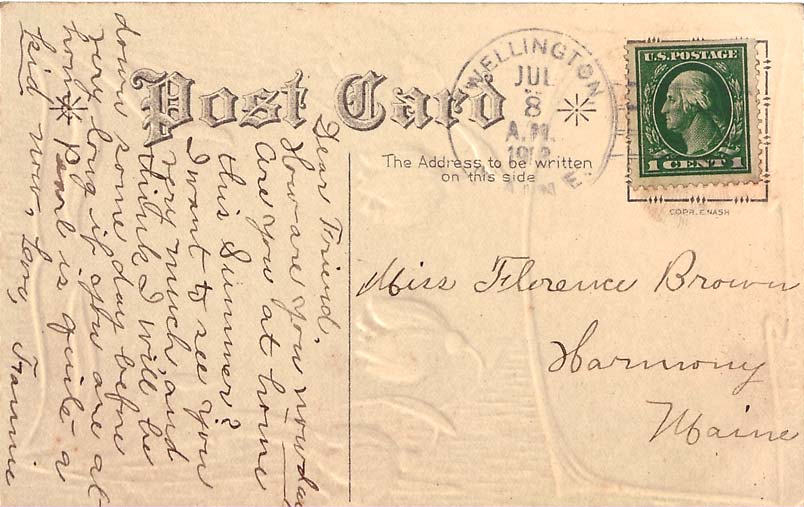 Post Card
WELLINGTON
JUL
8
A.M.
MAINE.
U.S. POSTAGE
1 CENT 1
The Address to be written
on this side
COPR. E. NASH
Dear Friend.
How are you nowdays
Are you at home
this Summer?
I want to see you
very much and
think I will be
down some day before
very long if you are at
home Pearl is quite a
kid now, Love, Frannie
Miss Florence Brown
Harmony
Maine